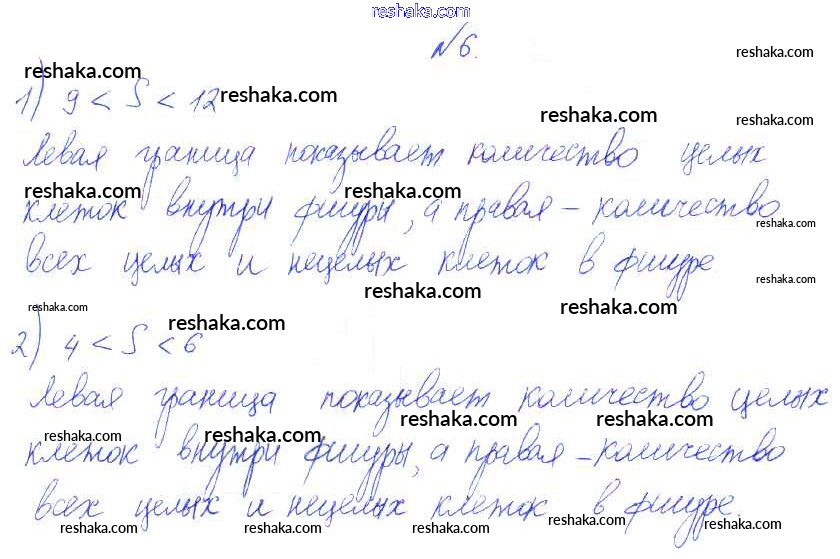 reshaka.com
№6.
reshaka.com
reshaka.com
1) 9 < S < 12 reshaka.com
reshaka.com
reshaka.com
Левая граница показывает количество целых
reshaka.com reshaka.com
клеток внутри фигуры, а правая – количество
reshaka.com
всех целых и нецелых клеток в фигуре
reshaka.com
reshaka.com
reshaka.com
reshaka.com
reshaka.com
2) 4 < S < 6
Левая граница показывает количество целых
reshaka.com reshaka.com reshaka.com reshaka.com
клеток внутри фигуры, а правая – количество
всех целых и нецелых клеток в фигуре.
reshaka.com reshaka.com reshaka.com reshaka.com reshaka.com